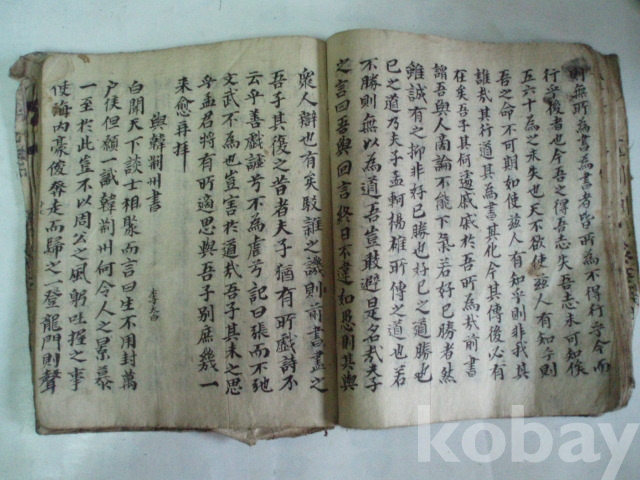 則無所為書為書者皆所為不得行乎今而
行乎後者也今吾之得吾志失吾志未可知俟
五六十為之未失也天不欲使茲人有知乎則
吾之命不可期如使茲人有知乎則非我其
誰哉其行道其為書其化今其傳後必有
在矣吾子其何遽戚戚於吾所為哉前書
謂吾與人商論不能下氣若好己勝者然
雖誠有之抑非好己勝也好己之道勝也
己之道乃夫子孟軻楊雄所傳之道也若
不勝則無以為道吾豈敢避是名哉夫子
之言曰吾與回言終日不違如愚則其與
衆人辯也有矣駁雜之譏則前書盡之
吾子其復之昔者夫子猶有所戲詩不
云乎善戲謔兮不為虐兮記曰張而不弛
文武不為也豈害於道哉吾子其未之思
乎孟君將有所適思與吾子別庶幾一
來愈再拜
與韓荊州書 李太白
白聞天下談士相聚而言曰生不用封萬
户侯但願一識韓荊州何令人之景慕
一至於此豈不以周公之風躬吐握之事
使海內豪俊奔走而歸之一登龍門則聲
kobay